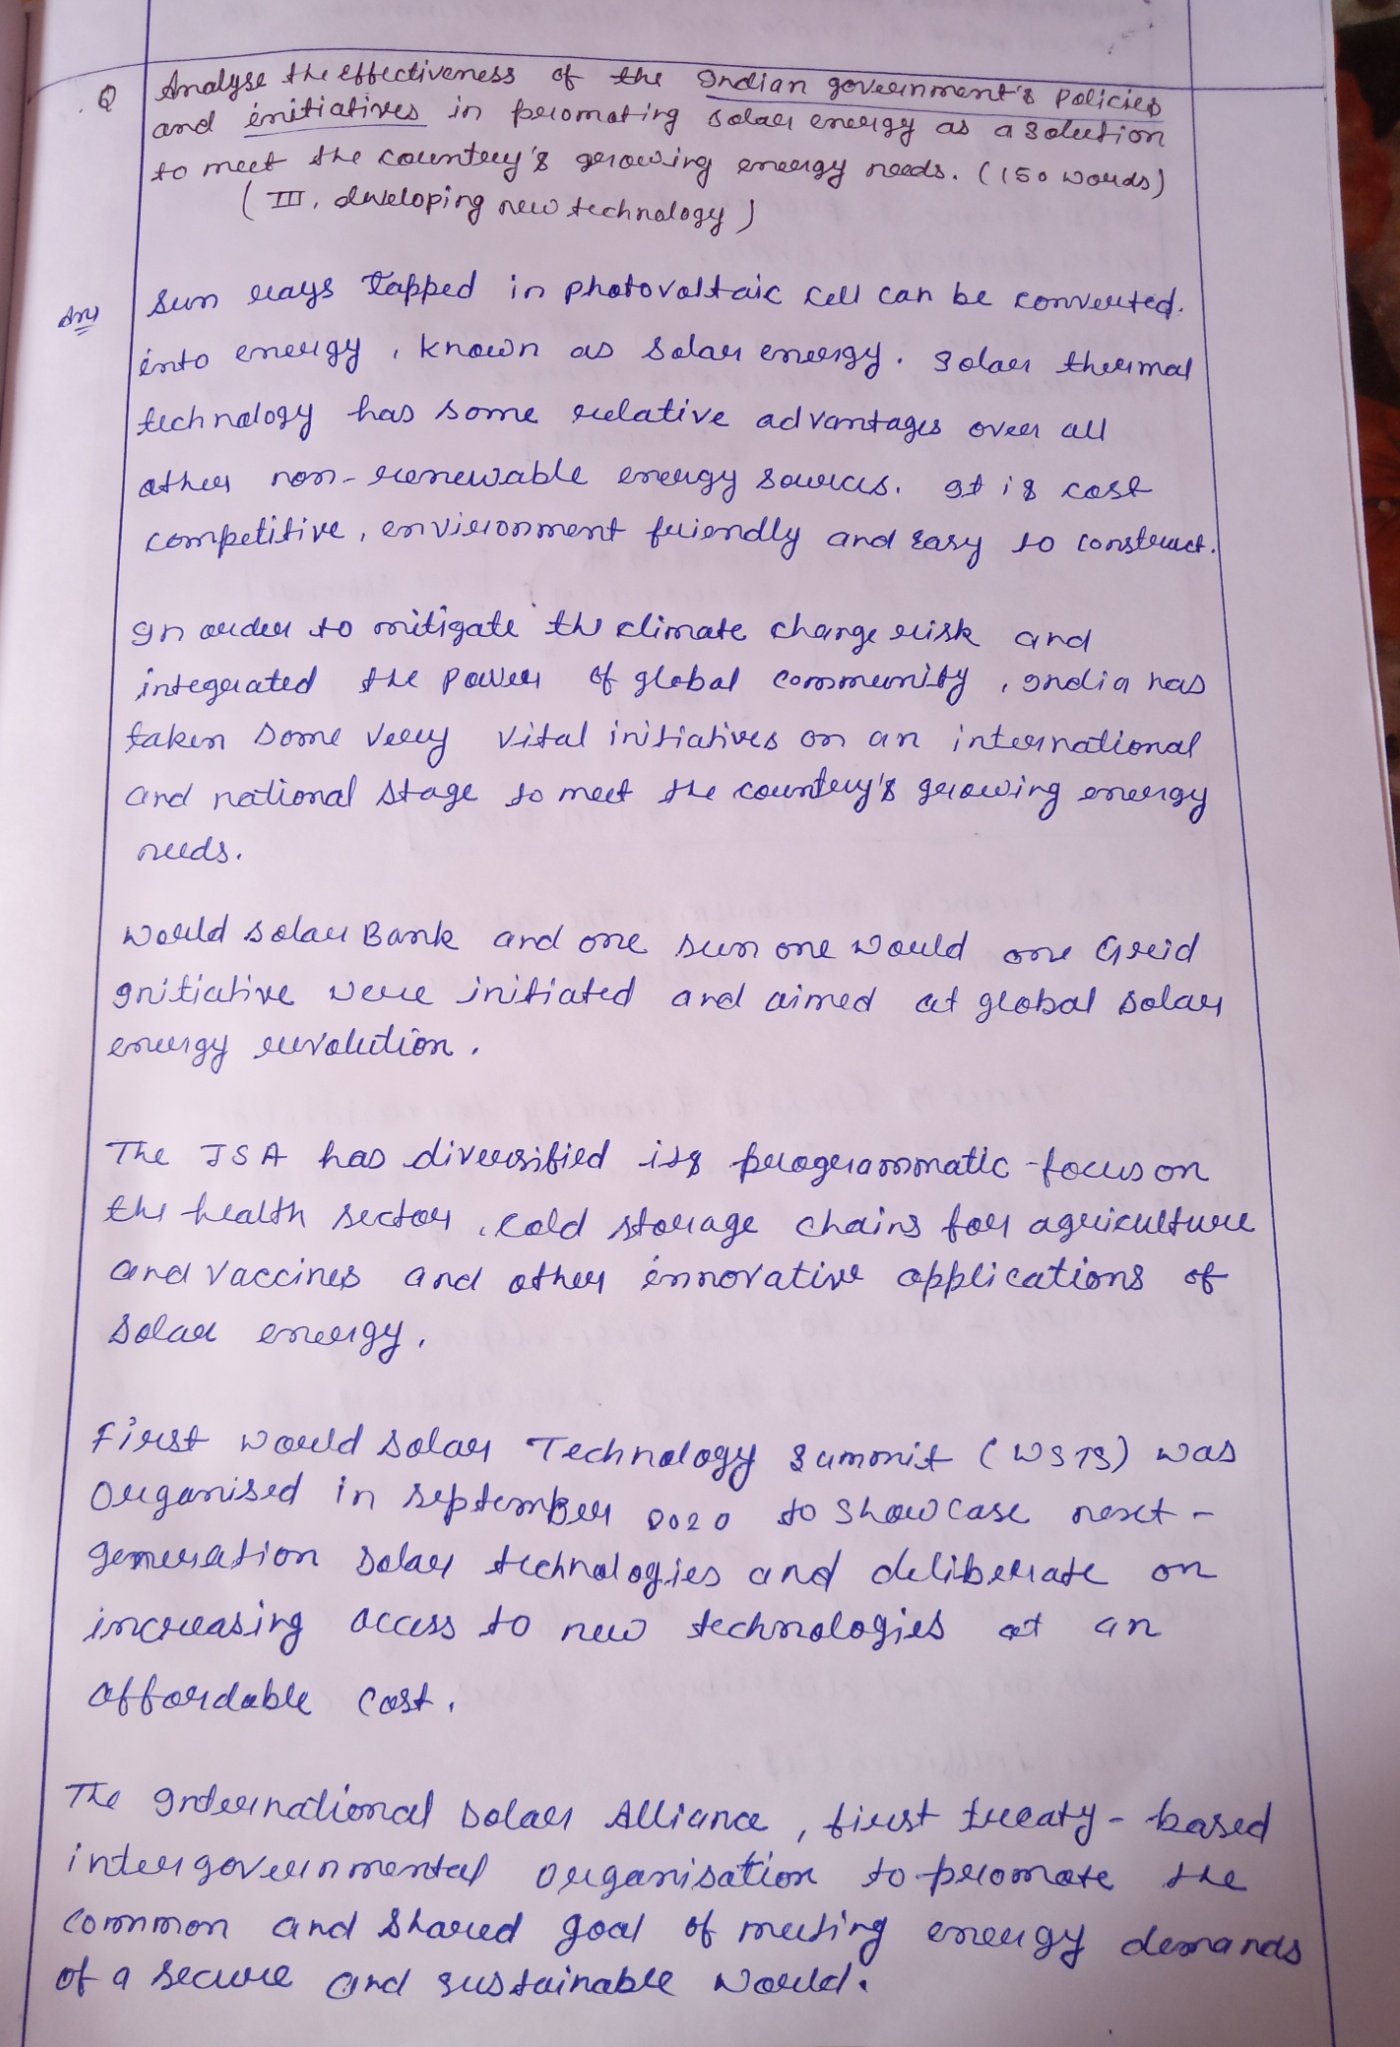 Q Analyse the effectiveness of the Indian government's policies
and initiatives in promoting solar energy as a solution
to meet the country's growing energy needs. (150 words)
(III, developing new technology)
Ans Sun rays tapped in photovoltaic cell can be converted.
into energy, known as solar energy. Solar thermal
technology has some relative advantages over all
other non-renewable energy sources. It is cost
competitive, environment friendly and easy to construct.
In order to mitigate the climate change risk and
integrated the power of global community, India has
taken some very vital initiatives on an international
and national stage to meet the country's growing energy
needs.
World Solar Bank and one sun one world one Grid
Initiative were initiated and aimed at global solar
energy revolution.
The ISA has diversified its programmatic focus on
the health sector, cold storage chains for agriculture
and vaccines and other innovative applications of
solar energy.
First world solar Technology Summit (WSTS) was
Organised in September 2020 to showcase next-
generation solar technologies and deliberate on
increasing access to new technologies at an
affordable cost.
The International Solar Alliance, first treaty-based
intergovernmental organisation to promote the
common and shared goal of meeting energy demands
of a secure and sustainable world.